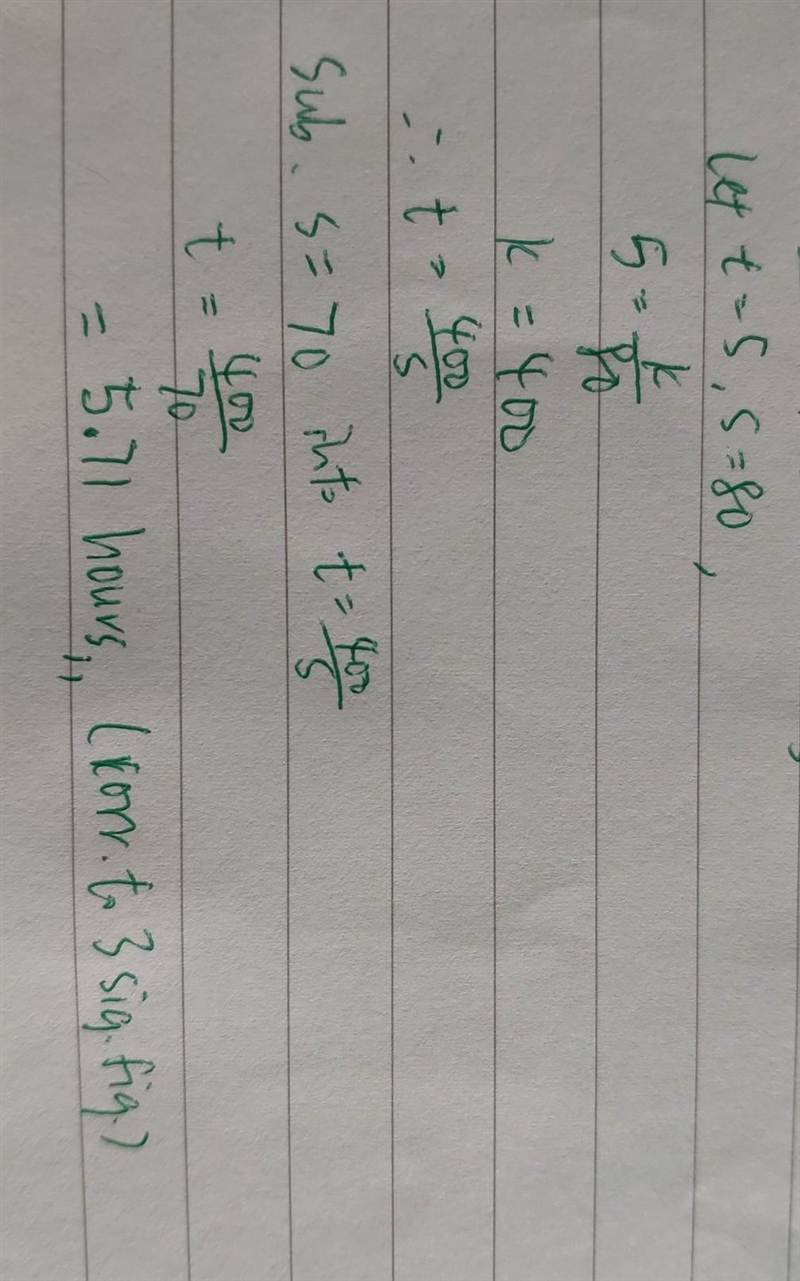 Let t = 5, s = 80,
5 = k/80
k = 400
∴ t = 400/s
Sub. s = 70 into t = 400/s
t = 400/70
= 5.71 hours,, (corr. to 3 sig. fig.)